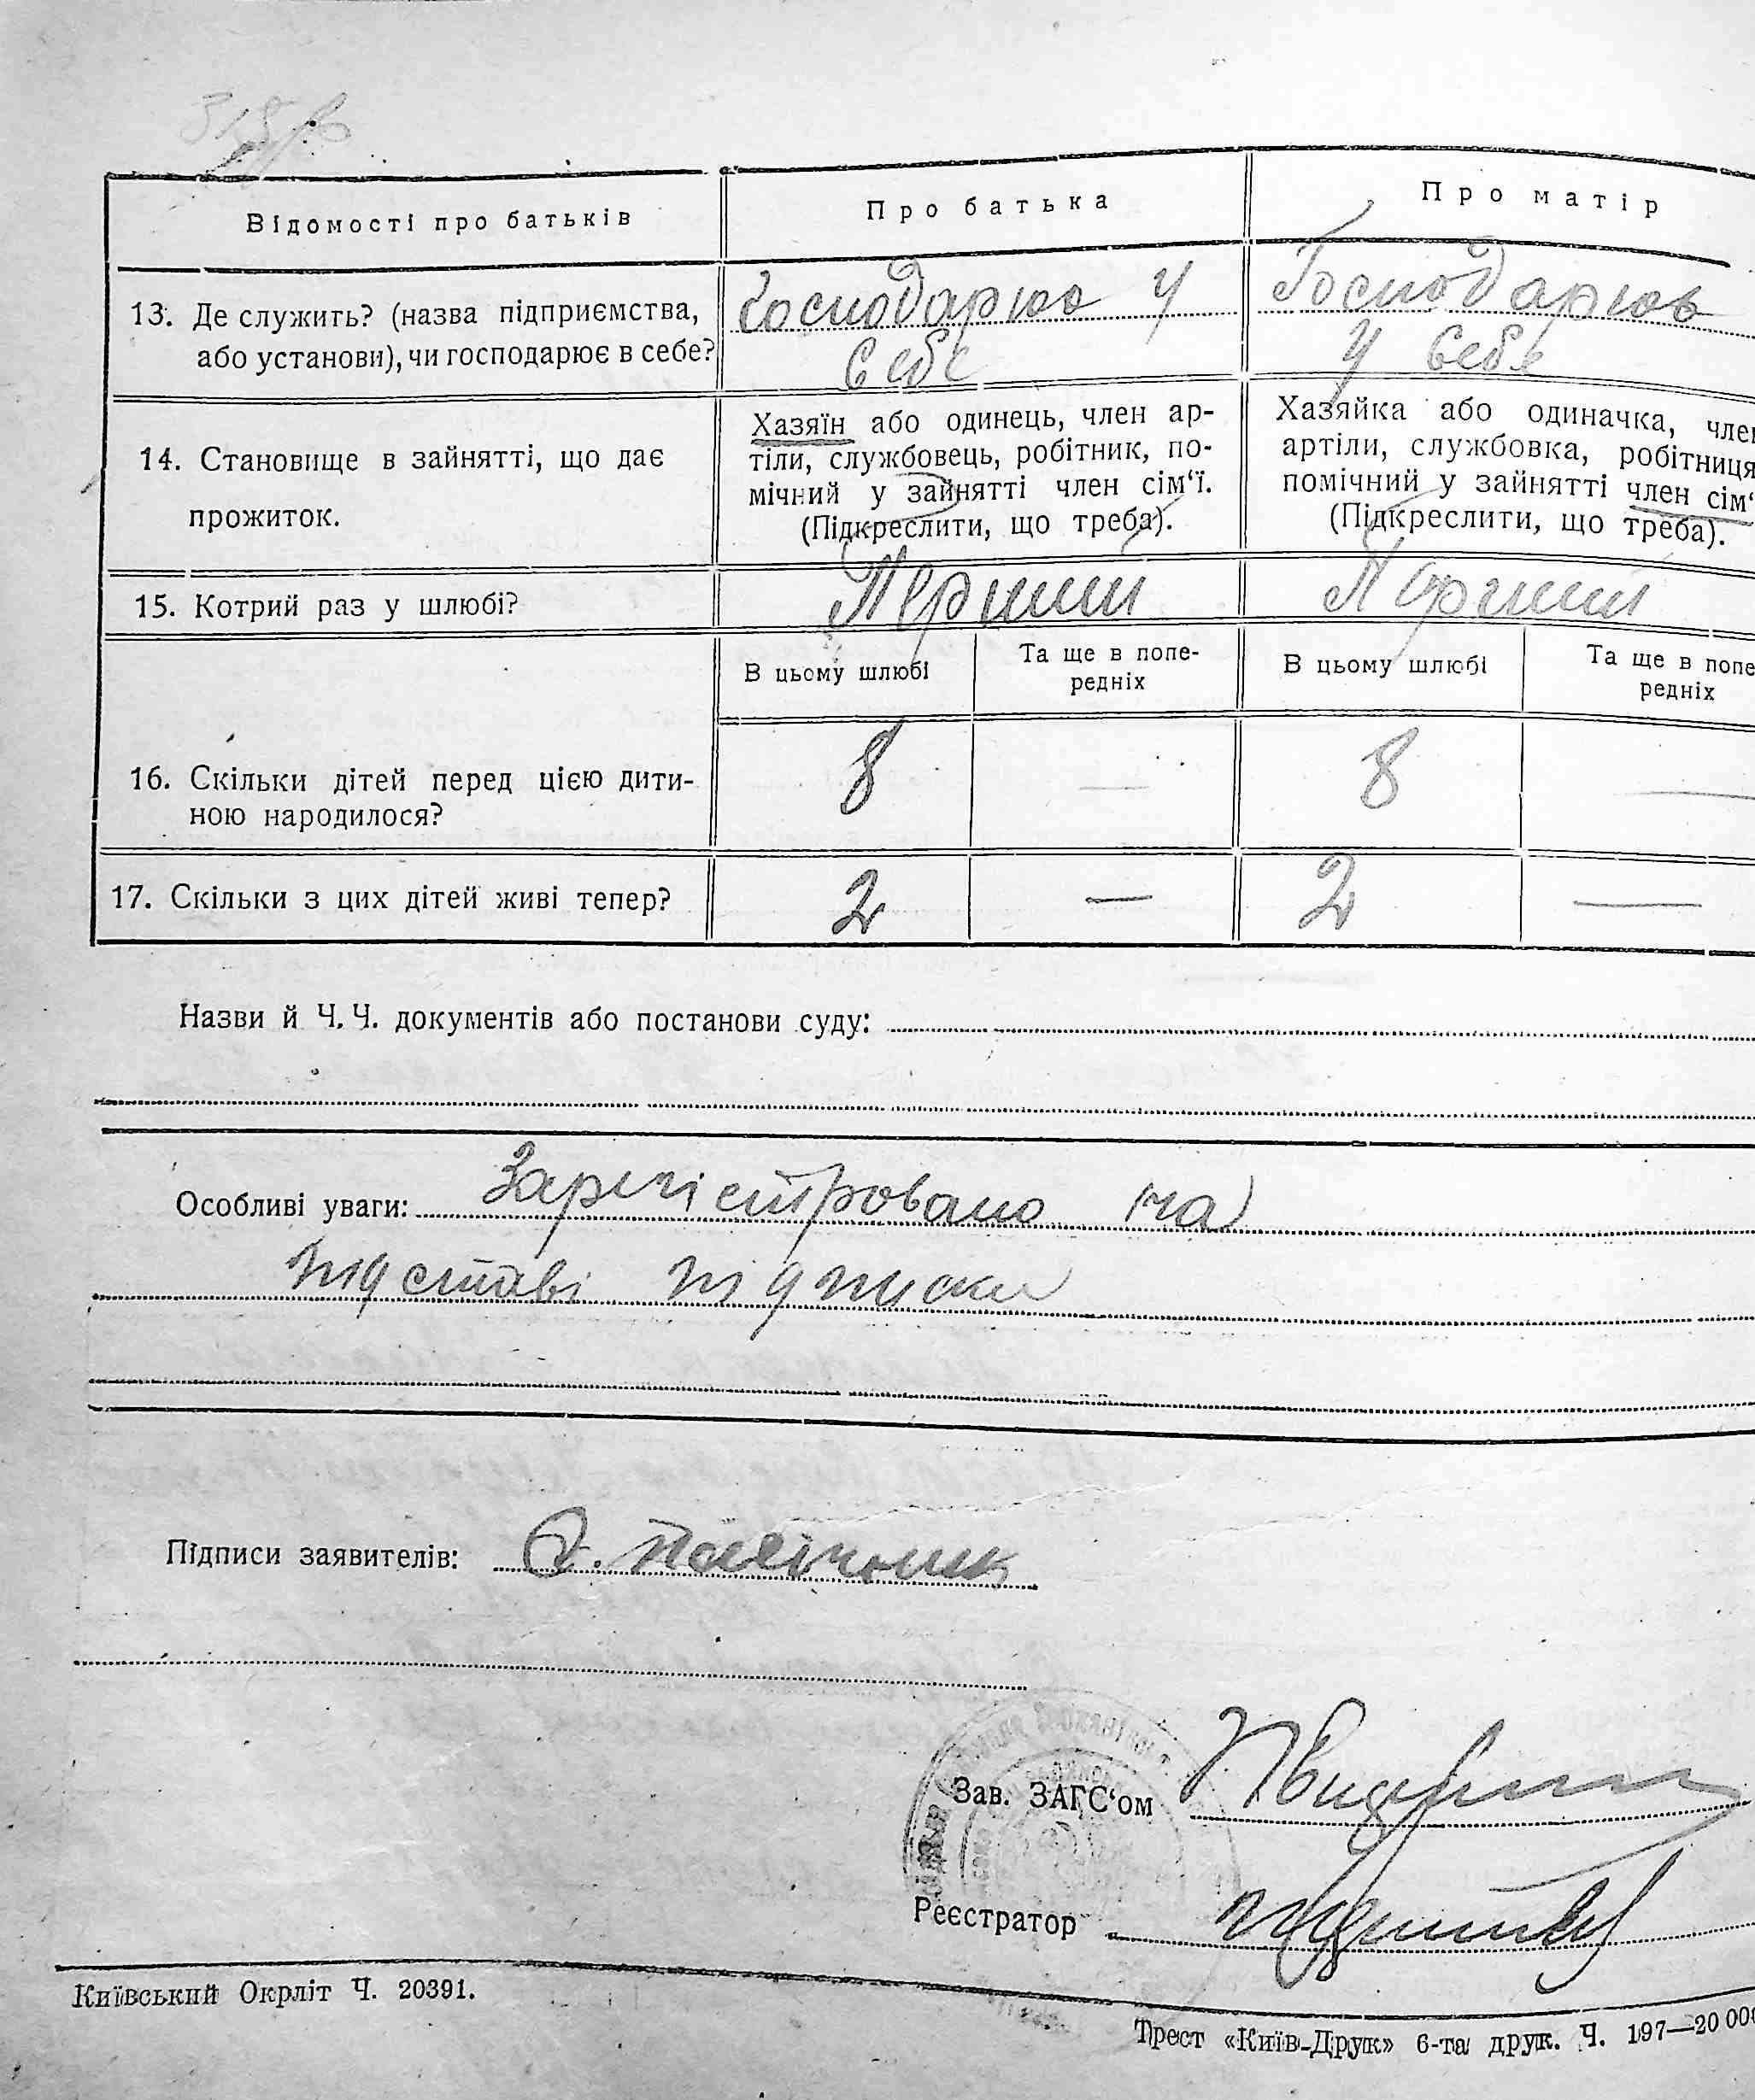 Відомості про батьків
Про батька
Про матір
13. Де служить? (назва підприємства,
або установи), чи господарює в себе?
Господарює у
себе
Господарює
у себе
14. Становище в зайнятті, що дає
прожиток.
Хазяїн або одинець, член ар-
тіли, службовець, робітник, по-
мічний у зайнятті член сім‘ї.
(Підкреслити, що треба).
Хазяйка або одиначка, член
артіли, службовка, робітниця
помічний у зайнятті член сім‘
(Підкреслити, що треба).
15. Котрий раз у шлюбі?
Перший
Перший
В цьому шлюбі
Та ще в попе-
редніх
В цьому шлюбі
Та ще в попе
редніх
16. Скільки дітей перед цією дити-
ною народилося?
8 — 8 —
17. Скільки з цих дітей живі тепер?
2 — 2 —
Назви й Ч.Ч. документів або постанови суду:
Особливі уваги: Зарегістровано на
підставі підписки
Підписи заявителів:
Зав. ЗАГС‘ом
Реєстратор
Київський Окрліт Ч. 20391.
Трест «Київ-Друк» 6-та друк. Ч. 197—20 000